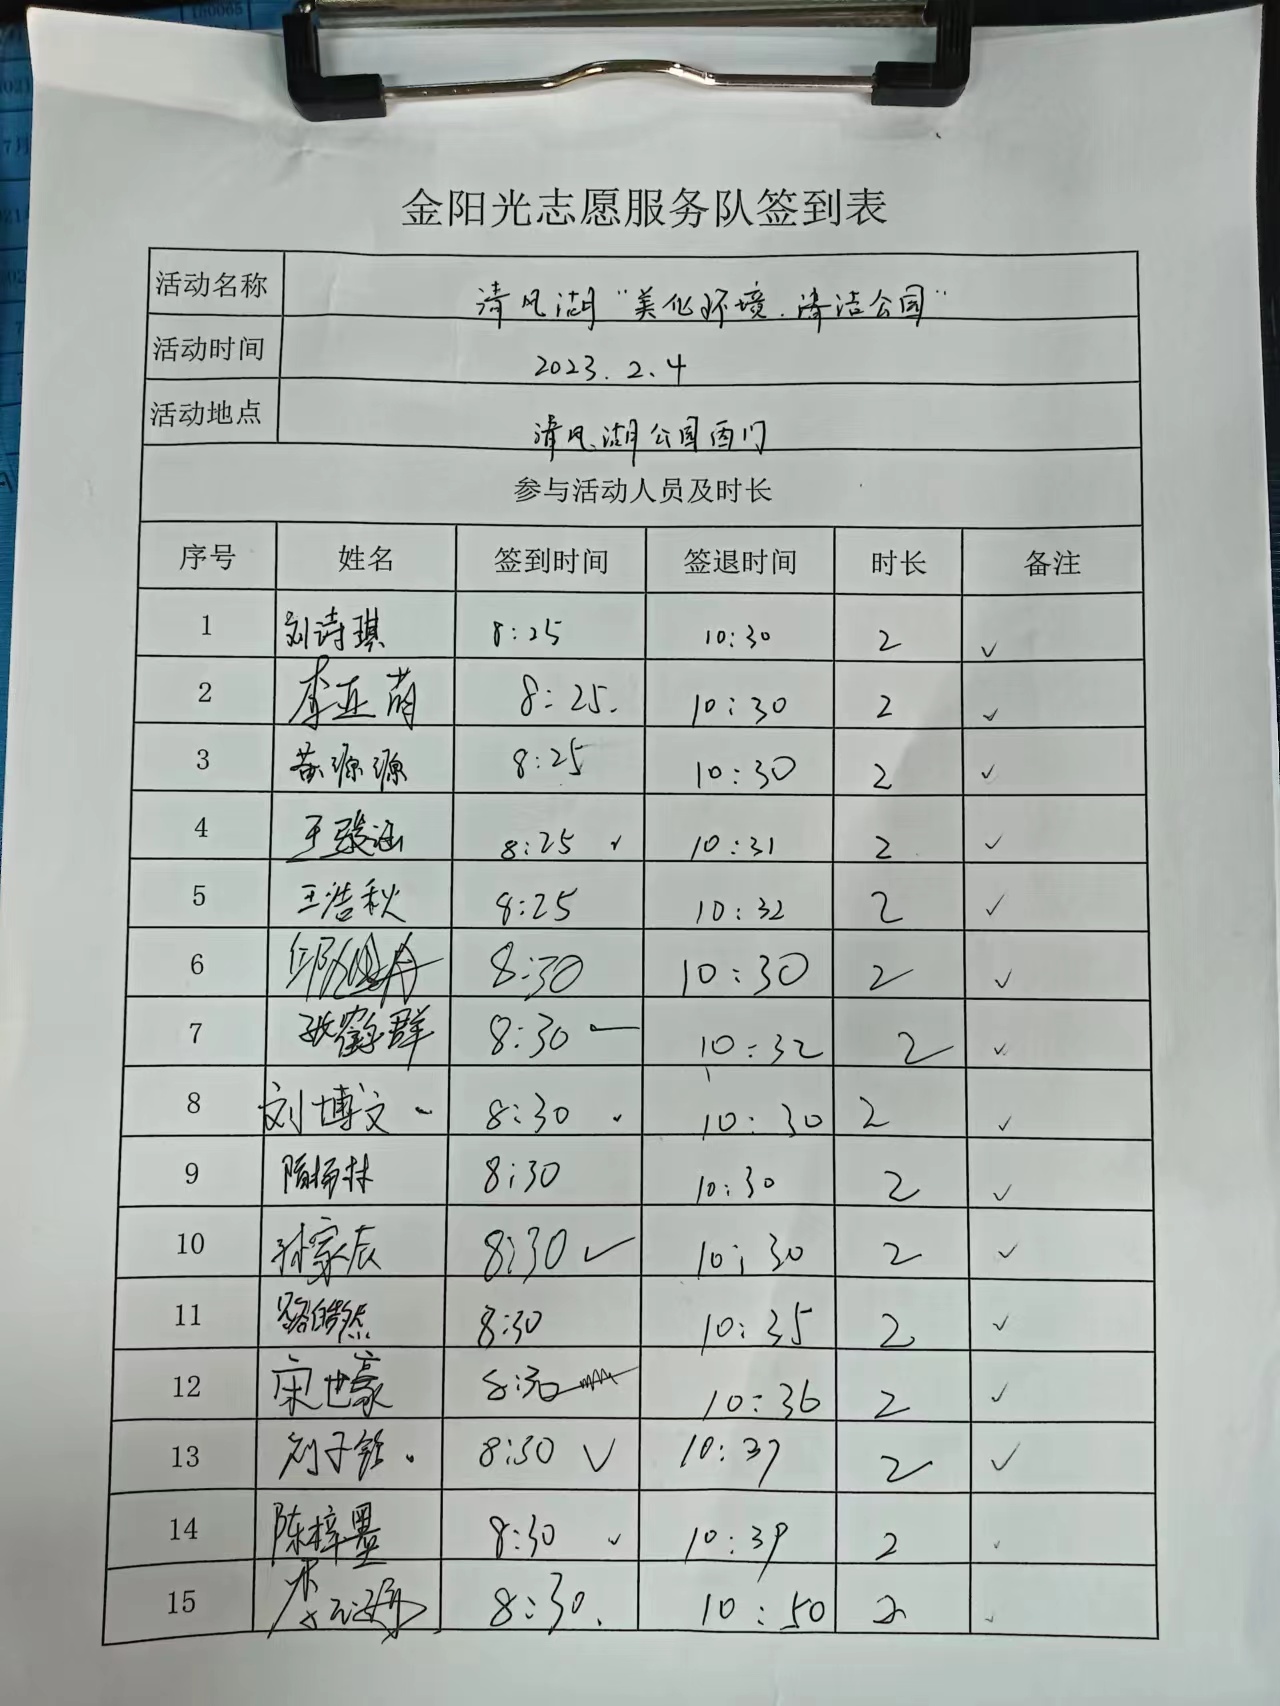 180065
7月
金阳光志愿服务队签到表
活动名称 清风湖“美化环境.清洁公园”
活动时间 2023.2.4
活动地点 清风湖公园西门
参与活动人员及时长
序号 姓名 签到时间 签退时间 时长 备注
1 刘诗琪 8:25 10:30 2 ✓
2 李亚萌 8:25. 10:30 2 ✓
3 黄源源 8:25 10:30 2 ✓
4 王骏涵 8:25 ✓ 10:31 2 ✓
5 王浩秋 8:25 10:32 2 ✓
6 8:30 10:30 2 ✓
7 张鹤群 8:30 ✓ 10:32 2 ✓
8 刘博文 8:30 10:30 2 ✓
9 隋杨林 8:30 10:30 2 ✓
10 孙家辰 8:30 ✓ 10:30 2 ✓
11 路皓然 8:30 10:35 2 ✓
12 宋世豪 8:30 10:36 2 ✓
13 刘子铭 8:30 ✓ 10:37 2 ✓
14 陈梓墨 8:30 ✓ 10:39 2 ✓
15 8:30. 10:50 2 ✓